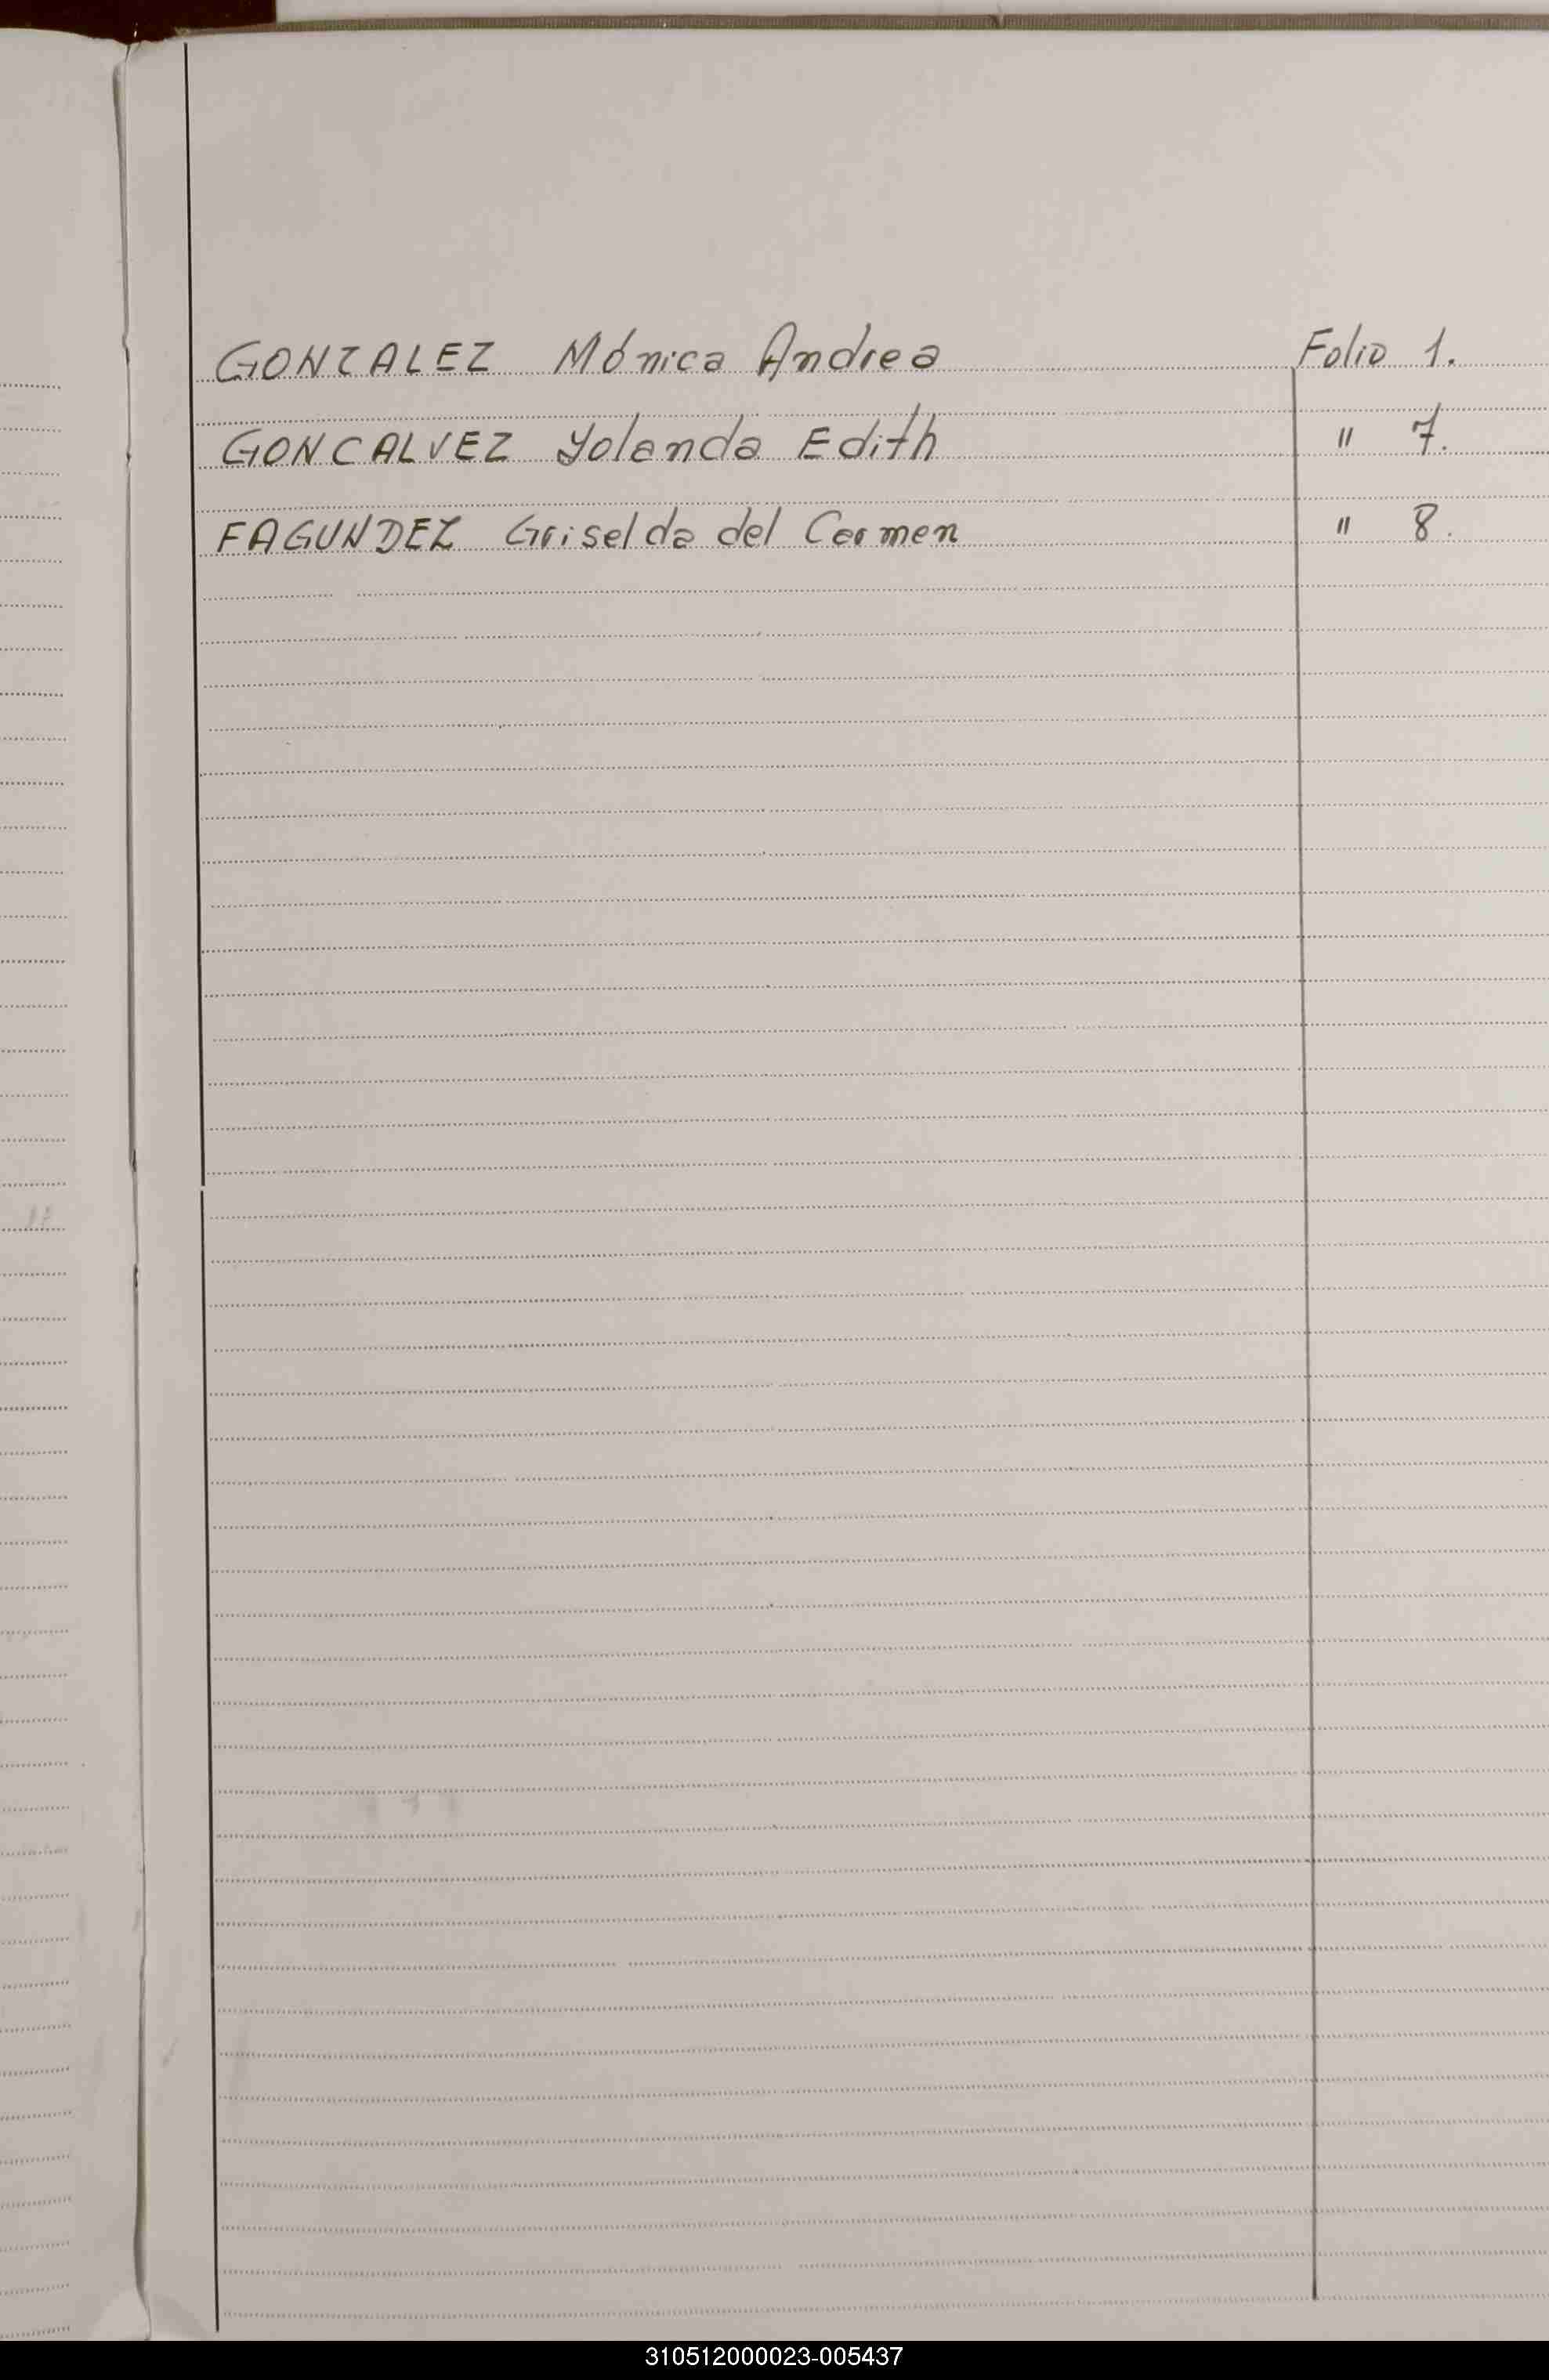 GONZALEZ Mónica Andrea Folio 1.
GONCALVEZ Yolanda Edith " 7.
FAGUNDEZ Griselda del Carmen " 8.
310512000023-005437